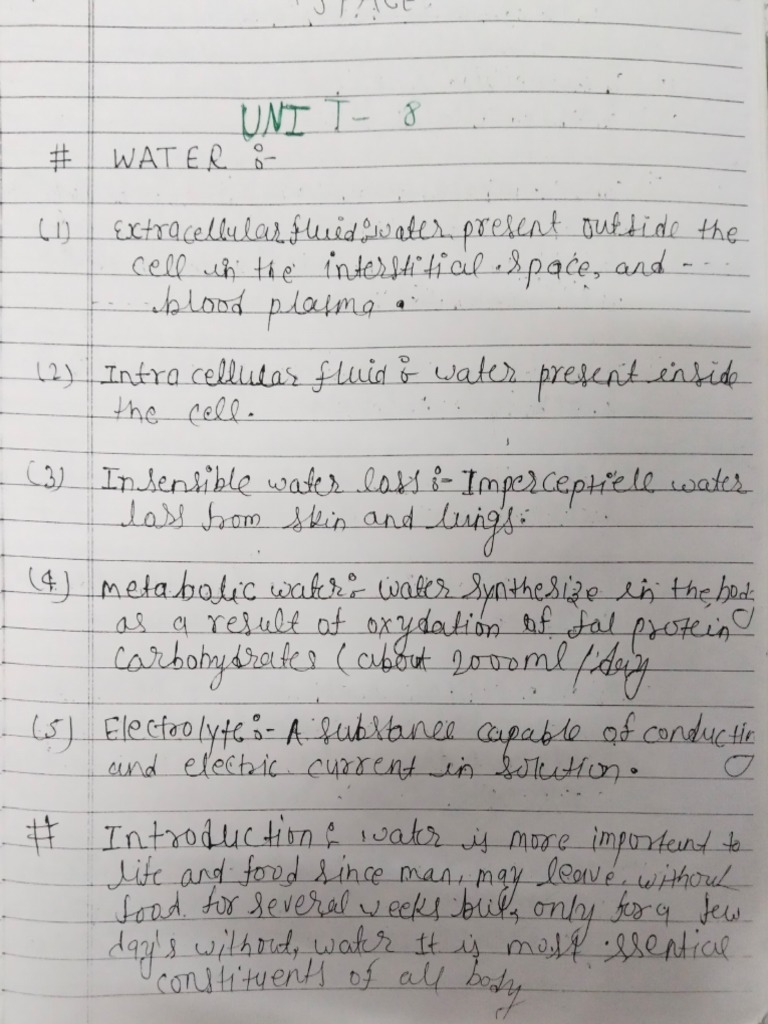 SPACE
UNIT - 8
# WATER :-
(1) Extracellular fluid :- water present outside the
cell in the interstitial space, and -
blood plasma .
(2) Intra cellular fluid :- water present inside
the cell.
(3) Insensible water loss :- Imperceptiele water
loss from skin and lungs.
(4) metabolic water :- water synthesize in the body
as a result of oxydation of fat protein
carbohydrates ( about 2000ml / day
(5) Electrolyte :- A substance capable of conductin
and electric current in solution.
# Introduction :- water is more important to
life and food since man, may leave, without
food for several weeks but, only for a few
day's without, water It is most essential
constituents of all body